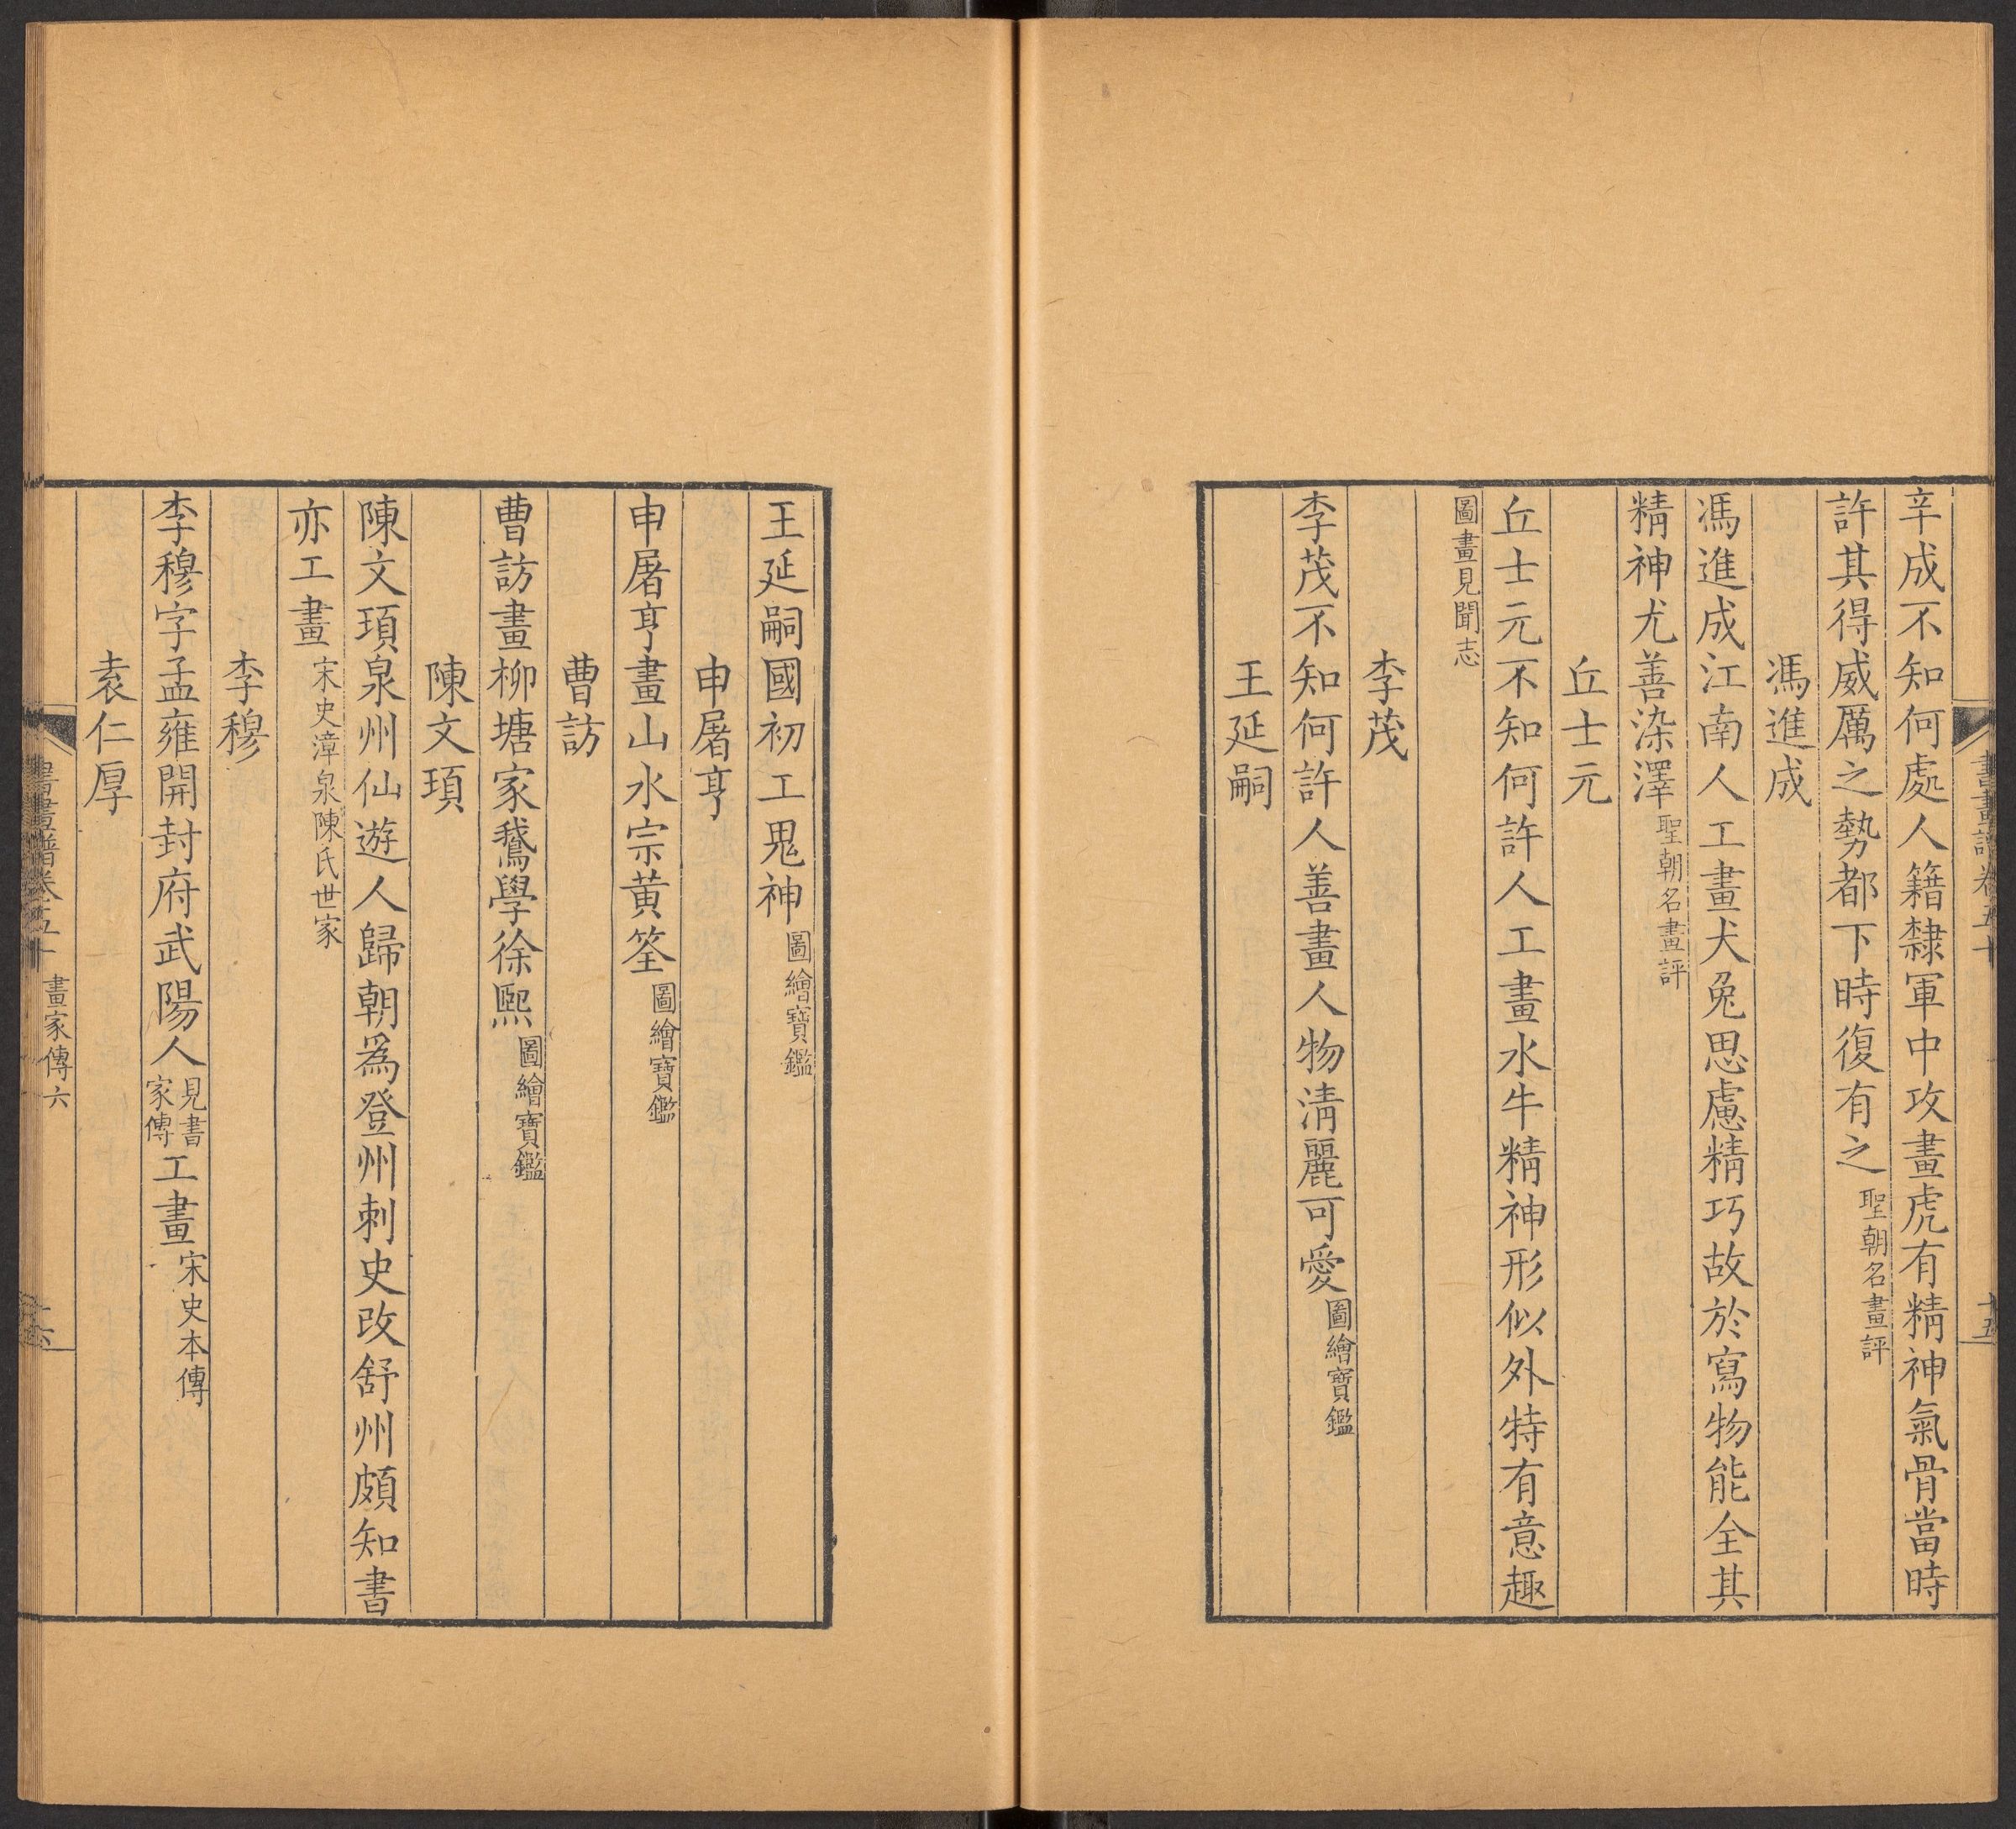 辛成不知何處人籍隸軍中攻畫虎有精神氣骨當時
許其得威厲之勢都下時復有之聖朝名畫評
馮進成
馮進成江南人工畫犬兔思慮精巧故於寫物能全其
精神尤善染澤聖朝名畫評
丘士元
丘士元不知何許人工畫水牛精神形似外特有意趣
圖畫見聞志
李茂
李茂不知何許人善畫人物淸麗可愛圖繪寶鑑
王延嗣
王延嗣國初工鬼神圖繪寶鑑
申屠亨
申屠亨畫山水宗黃筌圖繪寶鑑
曹訪
曹訪畫柳塘家鵞學徐熙圖繪寶鑑
陳文頊
陳文頊泉州仙遊人歸朝爲登州刺史改舒州頗知書
亦工畫宋史漳泉陳氏世家
李穆
李穆字孟雍開封府武陽人見書家傳工畫宋史本傳
袁仁厚
書畫譜卷五十 畫家傳六